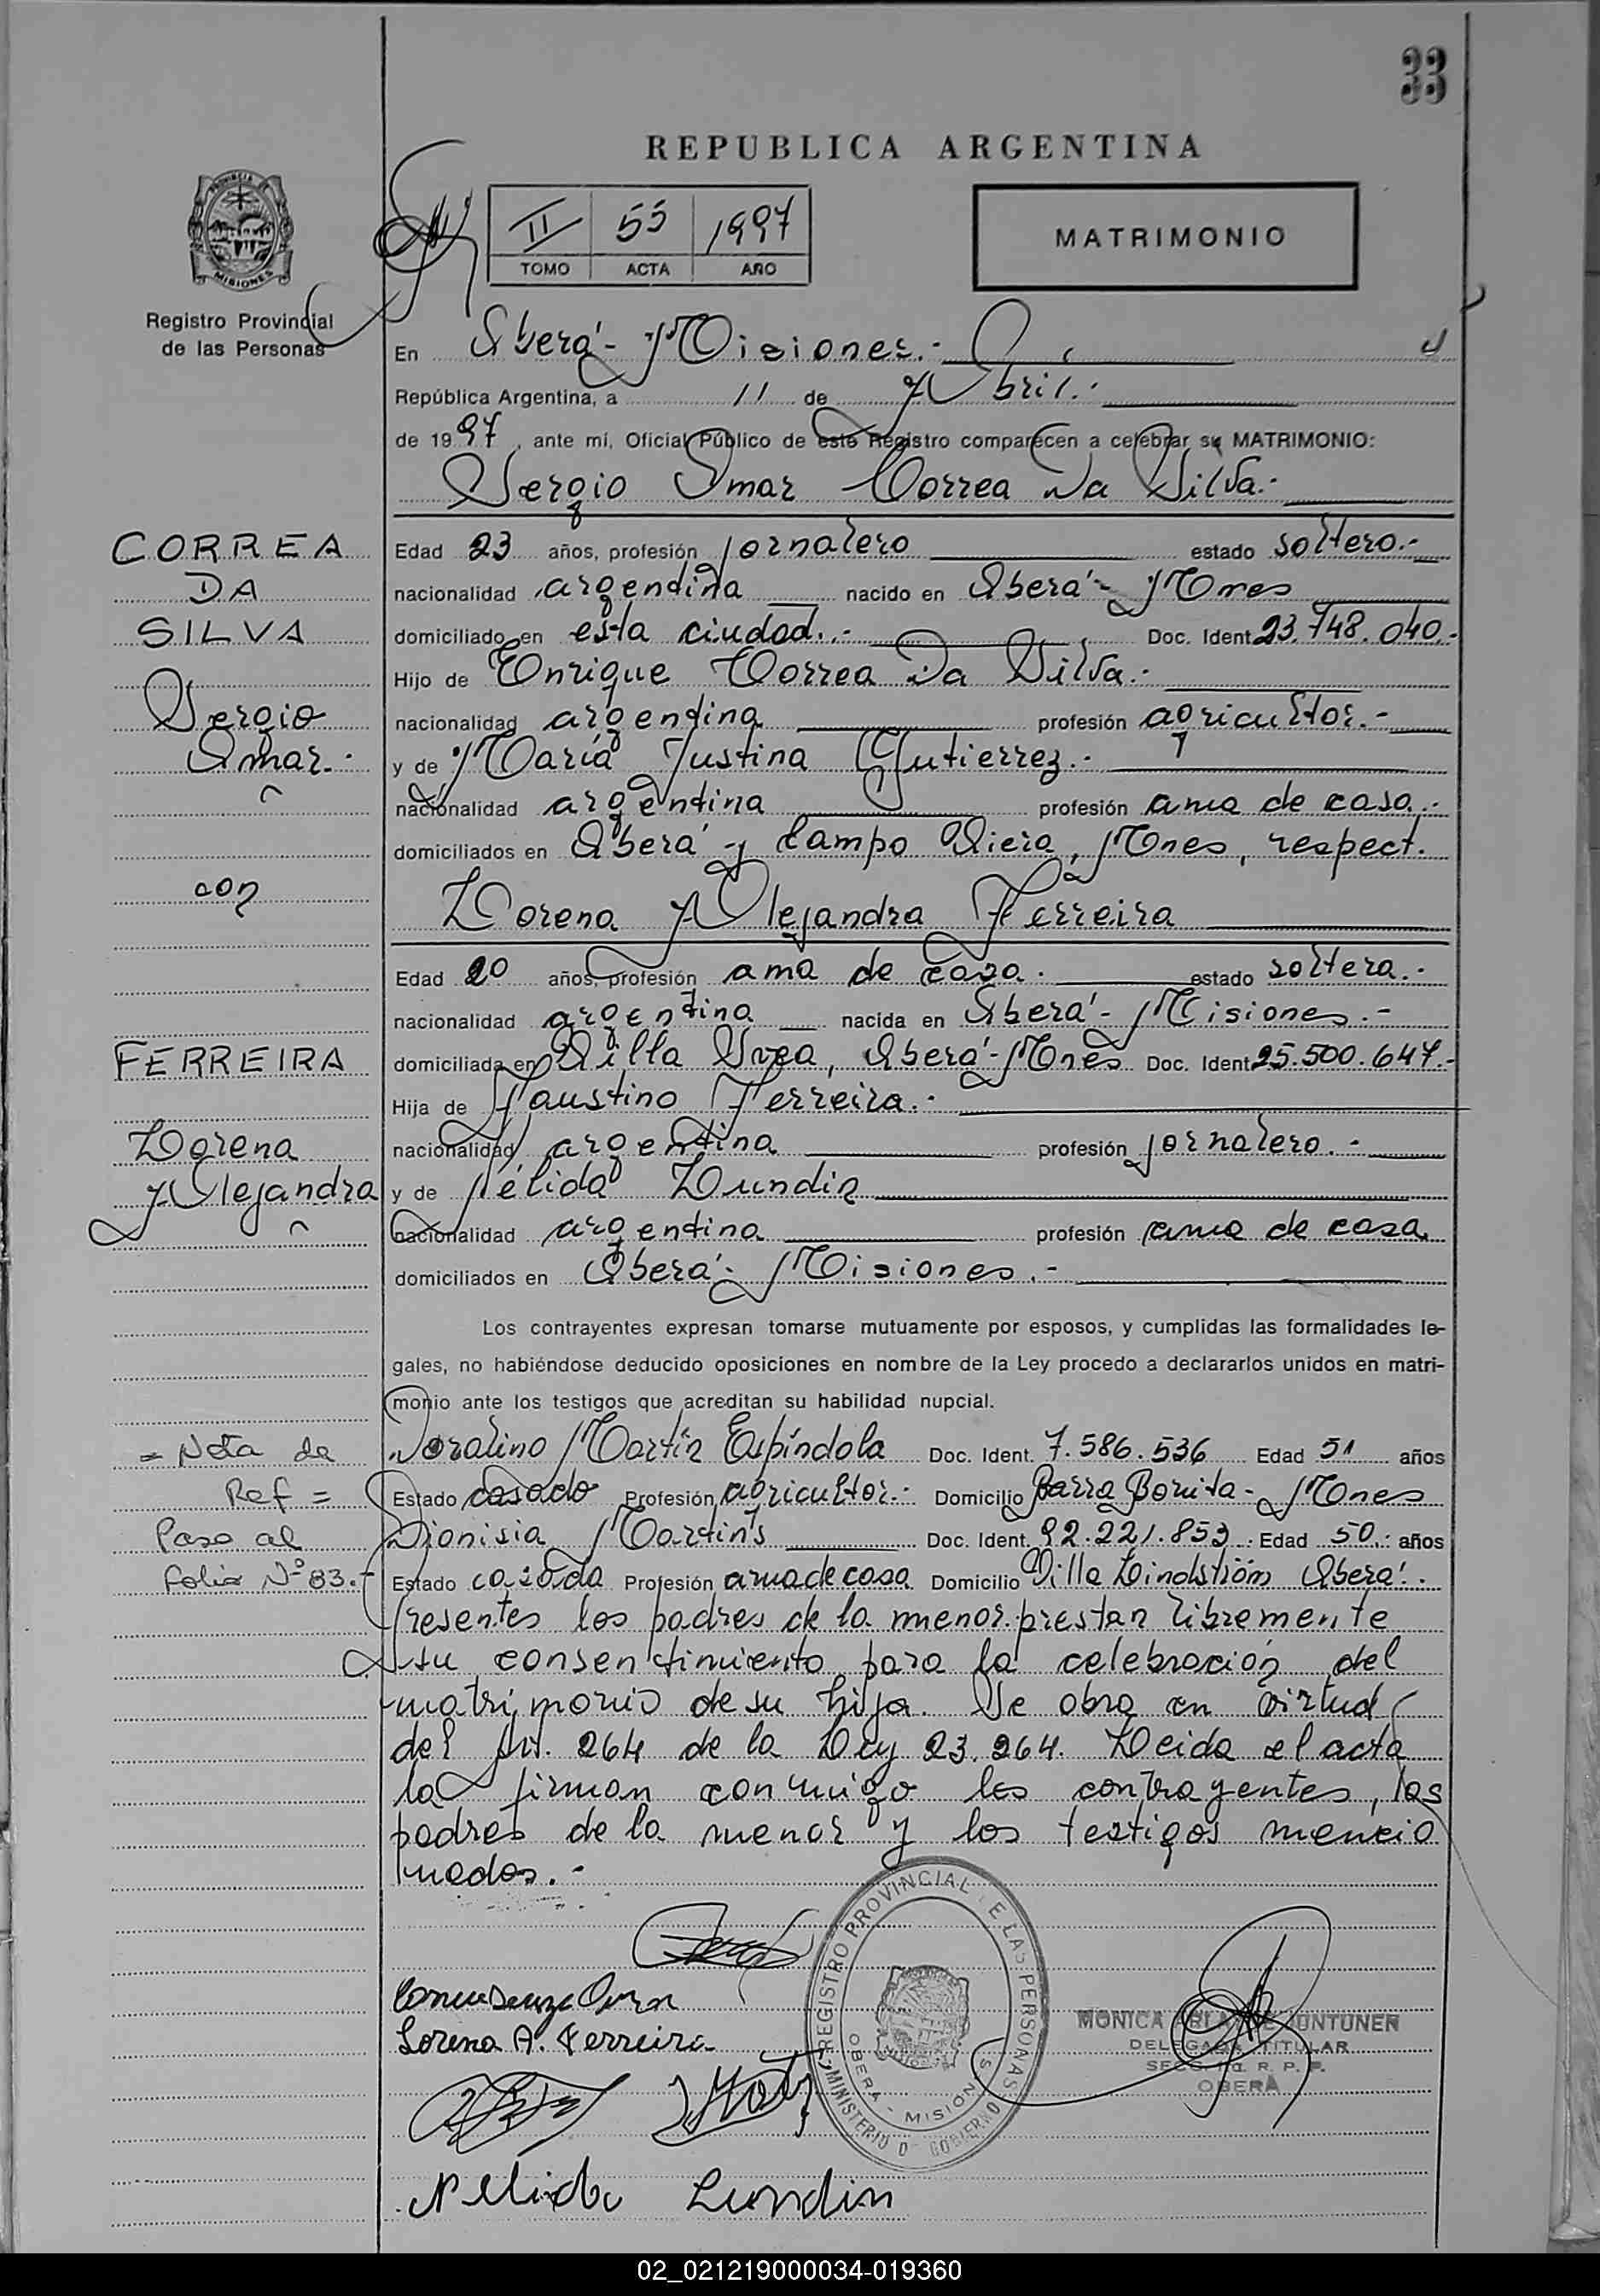 33
REPUBLICA ARGENTINA
II 55 1997
TOMO ACTA AÑO
MATRIMONIO
PROVINCIA DE
MISIONES
Registro Provincial
de las Personas
En Oberá - Misiones.-
República Argentina, a 11 de Abril.-
de 1997, ante mí, Oficial Público de este Registro comparecen a celebrar su MATRIMONIO:
Sergio Omar Correa Da Silva.-
CORREA
DA
SILVA
Sergio
Omar.-
con
FERREIRA
Lorena
Alejandra
= Nota de
Ref =
Paso al
folio Nº 83.-
Edad 23 años, profesión jornalero estado soltero.-
nacionalidad argentina nacido en Oberá - Mnes
domiciliado en esta ciudad.- Doc. Ident. 23.748.040.-
Hijo de Enrique Correa Da Silva.-
nacionalidad argentina profesión agricultor.-
y de María Justina Gutierrez.-
nacionalidad argentina profesión ama de casa.-
domiciliados en Oberá y Campo Viera, Mnes, respect.
Lorena Alejandra Ferreira
Edad 20 años, profesión ama de casa.- estado soltera.-
nacionalidad argentina nacida en Oberá - Misiones.-
domiciliada en Villa Svea, Oberá - Mnes Doc. Ident. 25.500.647.-
Hija de Faustino Ferreira.-
nacionalidad argentina profesión jornalero.-
y de Nélida Lundin
nacionalidad argentina profesión ama de casa
domiciliados en Oberá - Misiones.-
Los contrayentes expresan tomarse mutuamente por esposos, y cumplidas las formalidades le-
gales, no habiéndose deducido oposiciones en nombre de la Ley procedo a declararlos unidos en matri-
monio ante los testigos que acreditan su habilidad nupcial.
Martín Espíndola Doc. Ident. 7.586.536 Edad 51 años
Estado casado Profesión agricultor.- Domicilio Barra Bonita - Mnes
Dionisia Martins Doc. Ident. 92.221.853 Edad 50.- años
Estado casada Profesión ama de casa Domicilio Villa Lindström Oberá.-
Presentes los padres de la menor prestan libremente
su consentimiento para la celebración del
matrimonio de su hija. Se obra en virtud
del Art. 264 de la Ley 23.264. Leida el acta
la firman conmigo los contrayentes, los
padres de la menor y los testigos mencio
nados.-
REGISTRO PROVINCIAL DE LAS PERSONAS
MINISTERIO D GOBIERNO
OBERA - MISIONES
Lorena A. Ferreira
MONICA
DELEGADA TITULAR
OBERÁ
Nelida Lundin
02_021219000034-019360